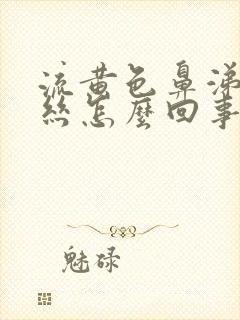 流黄色鼻涕
絲怎麼回事
魅碌